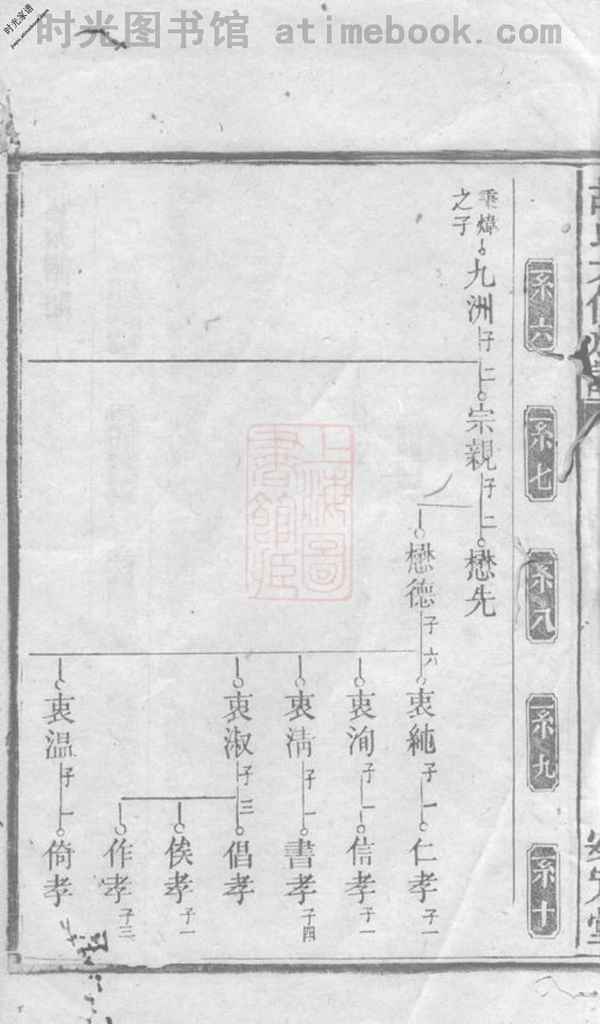 时光图书馆 atimebook.com
时光家谱
系六
系七
系八
系九
系十
秉煒
之子
九洲 子二
宗親 子二
懋先
懋德 子六
衷純 子一
仁孝 子一
衷洵 子一
信孝 子一
衷清 子一
書孝 子四
衷淑 子三
倡孝
俟孝 子一
作孝 子三
衷温 子一
倚孝
上海圖
書館藏